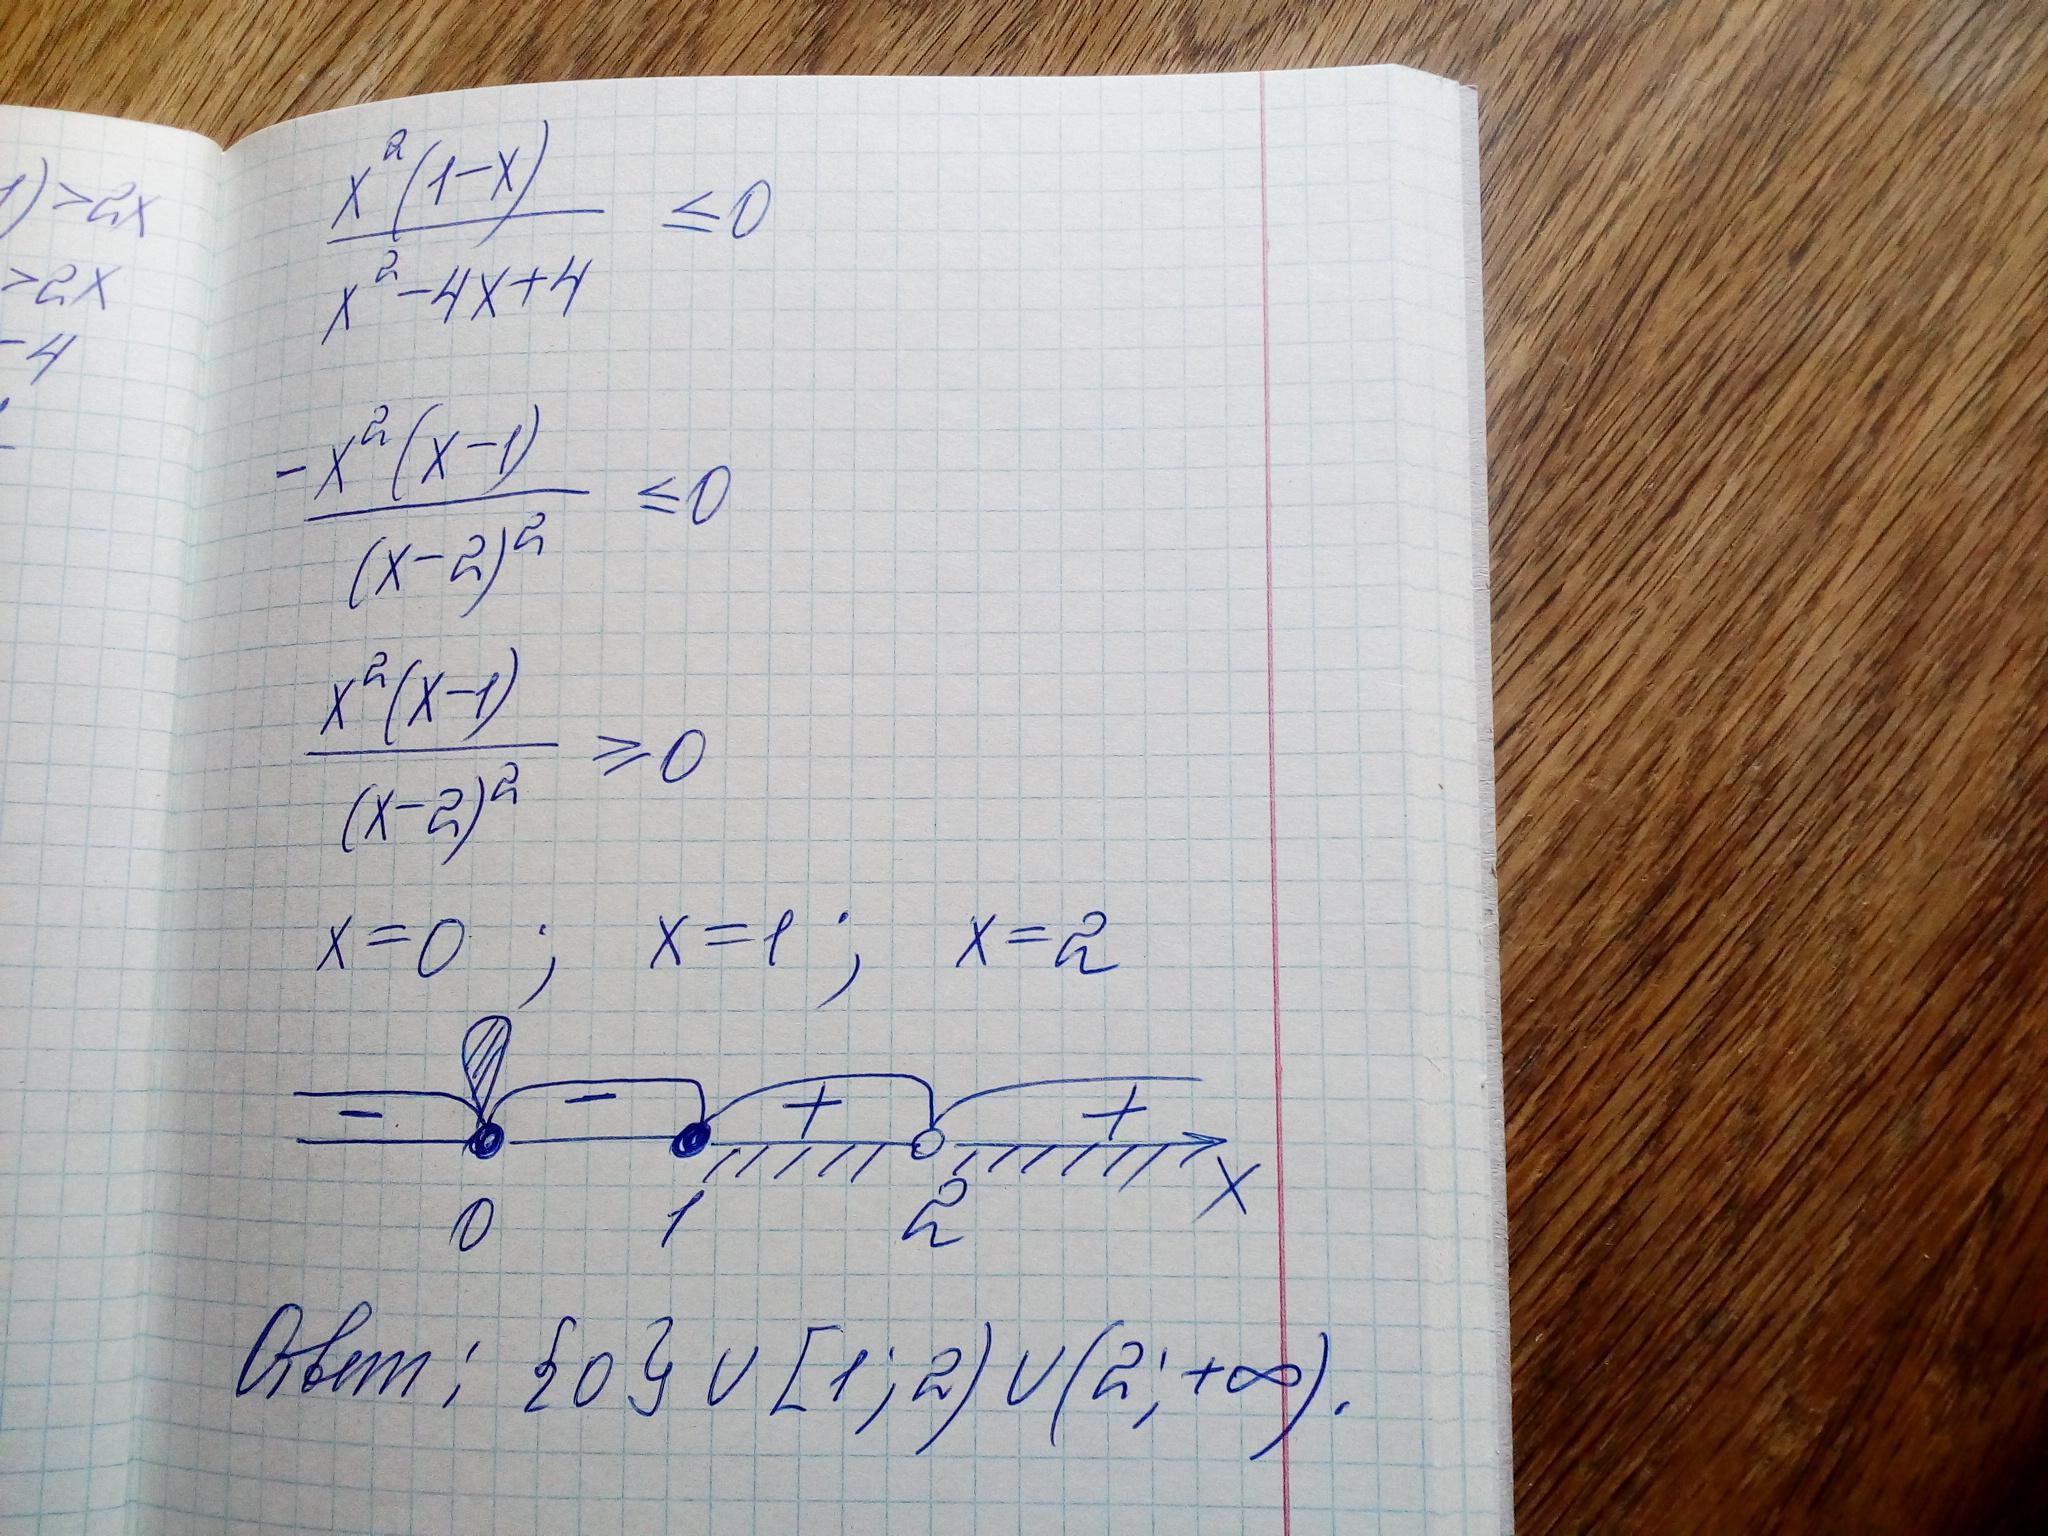 1) > 2x
> 2x
- 4
x²(1-x) / x²-4x+4 ≤ 0
-x²(x-1) / (x-2)² ≤ 0
x²(x-1) / (x-2)² ≥ 0
x=0 ; x=1 ; x=2
- - + +
0 1 2 x
Ответ: {0} ∪ [1; 2) ∪ (2; +∞).